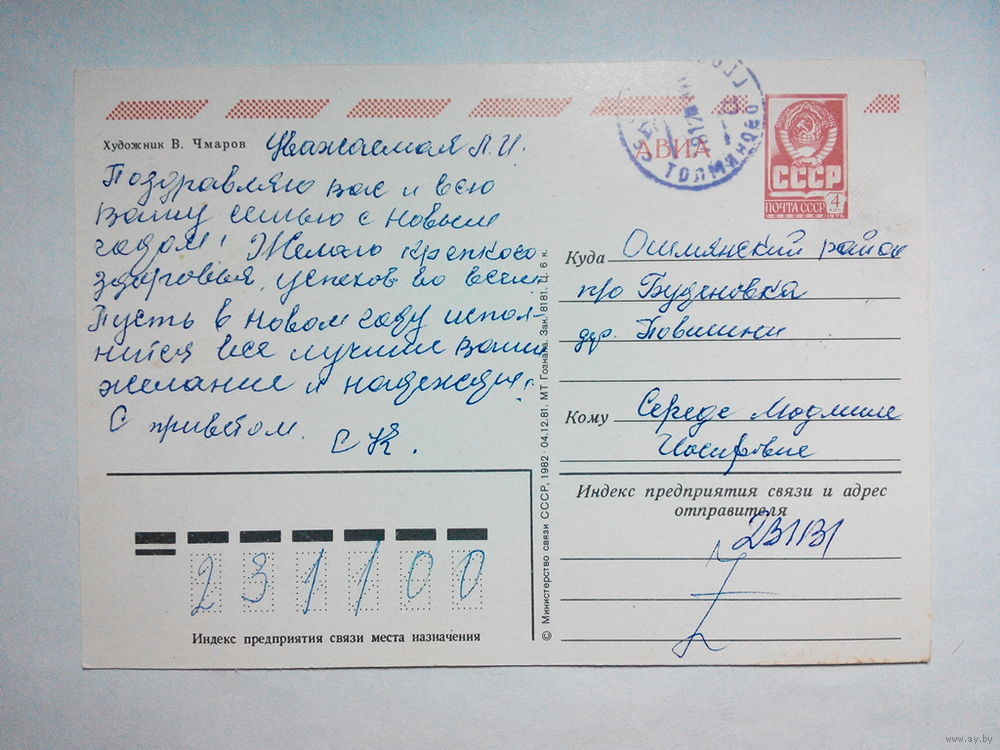 Художник В. Чмаров
Уважаемая Л.И.
Поздравляю вас и всю
Вашу семью с новым
годом! Желаю крепкого
здоровья, успехов во всем.
Пусть в новом году испол-
нятся все лучшие Ваши
желание и надежды!
С приветом.
С К.
АВИА
ТОЛМИНОВО
СССР
ПОЧТА СССР
4
КОП
1976
Куда Ошмянский район
про Будёновка
дер.
Кому Середе Людмиле
Иосифовне
Индекс предприятия связи и адрес
отправителя
231100
Индекс предприятия связи места назначения
© Министерство связи СССР, 1982 · 04.12.81. МТ Гознака. Зак. 8181. Ц. 6 к.
www.ay.by